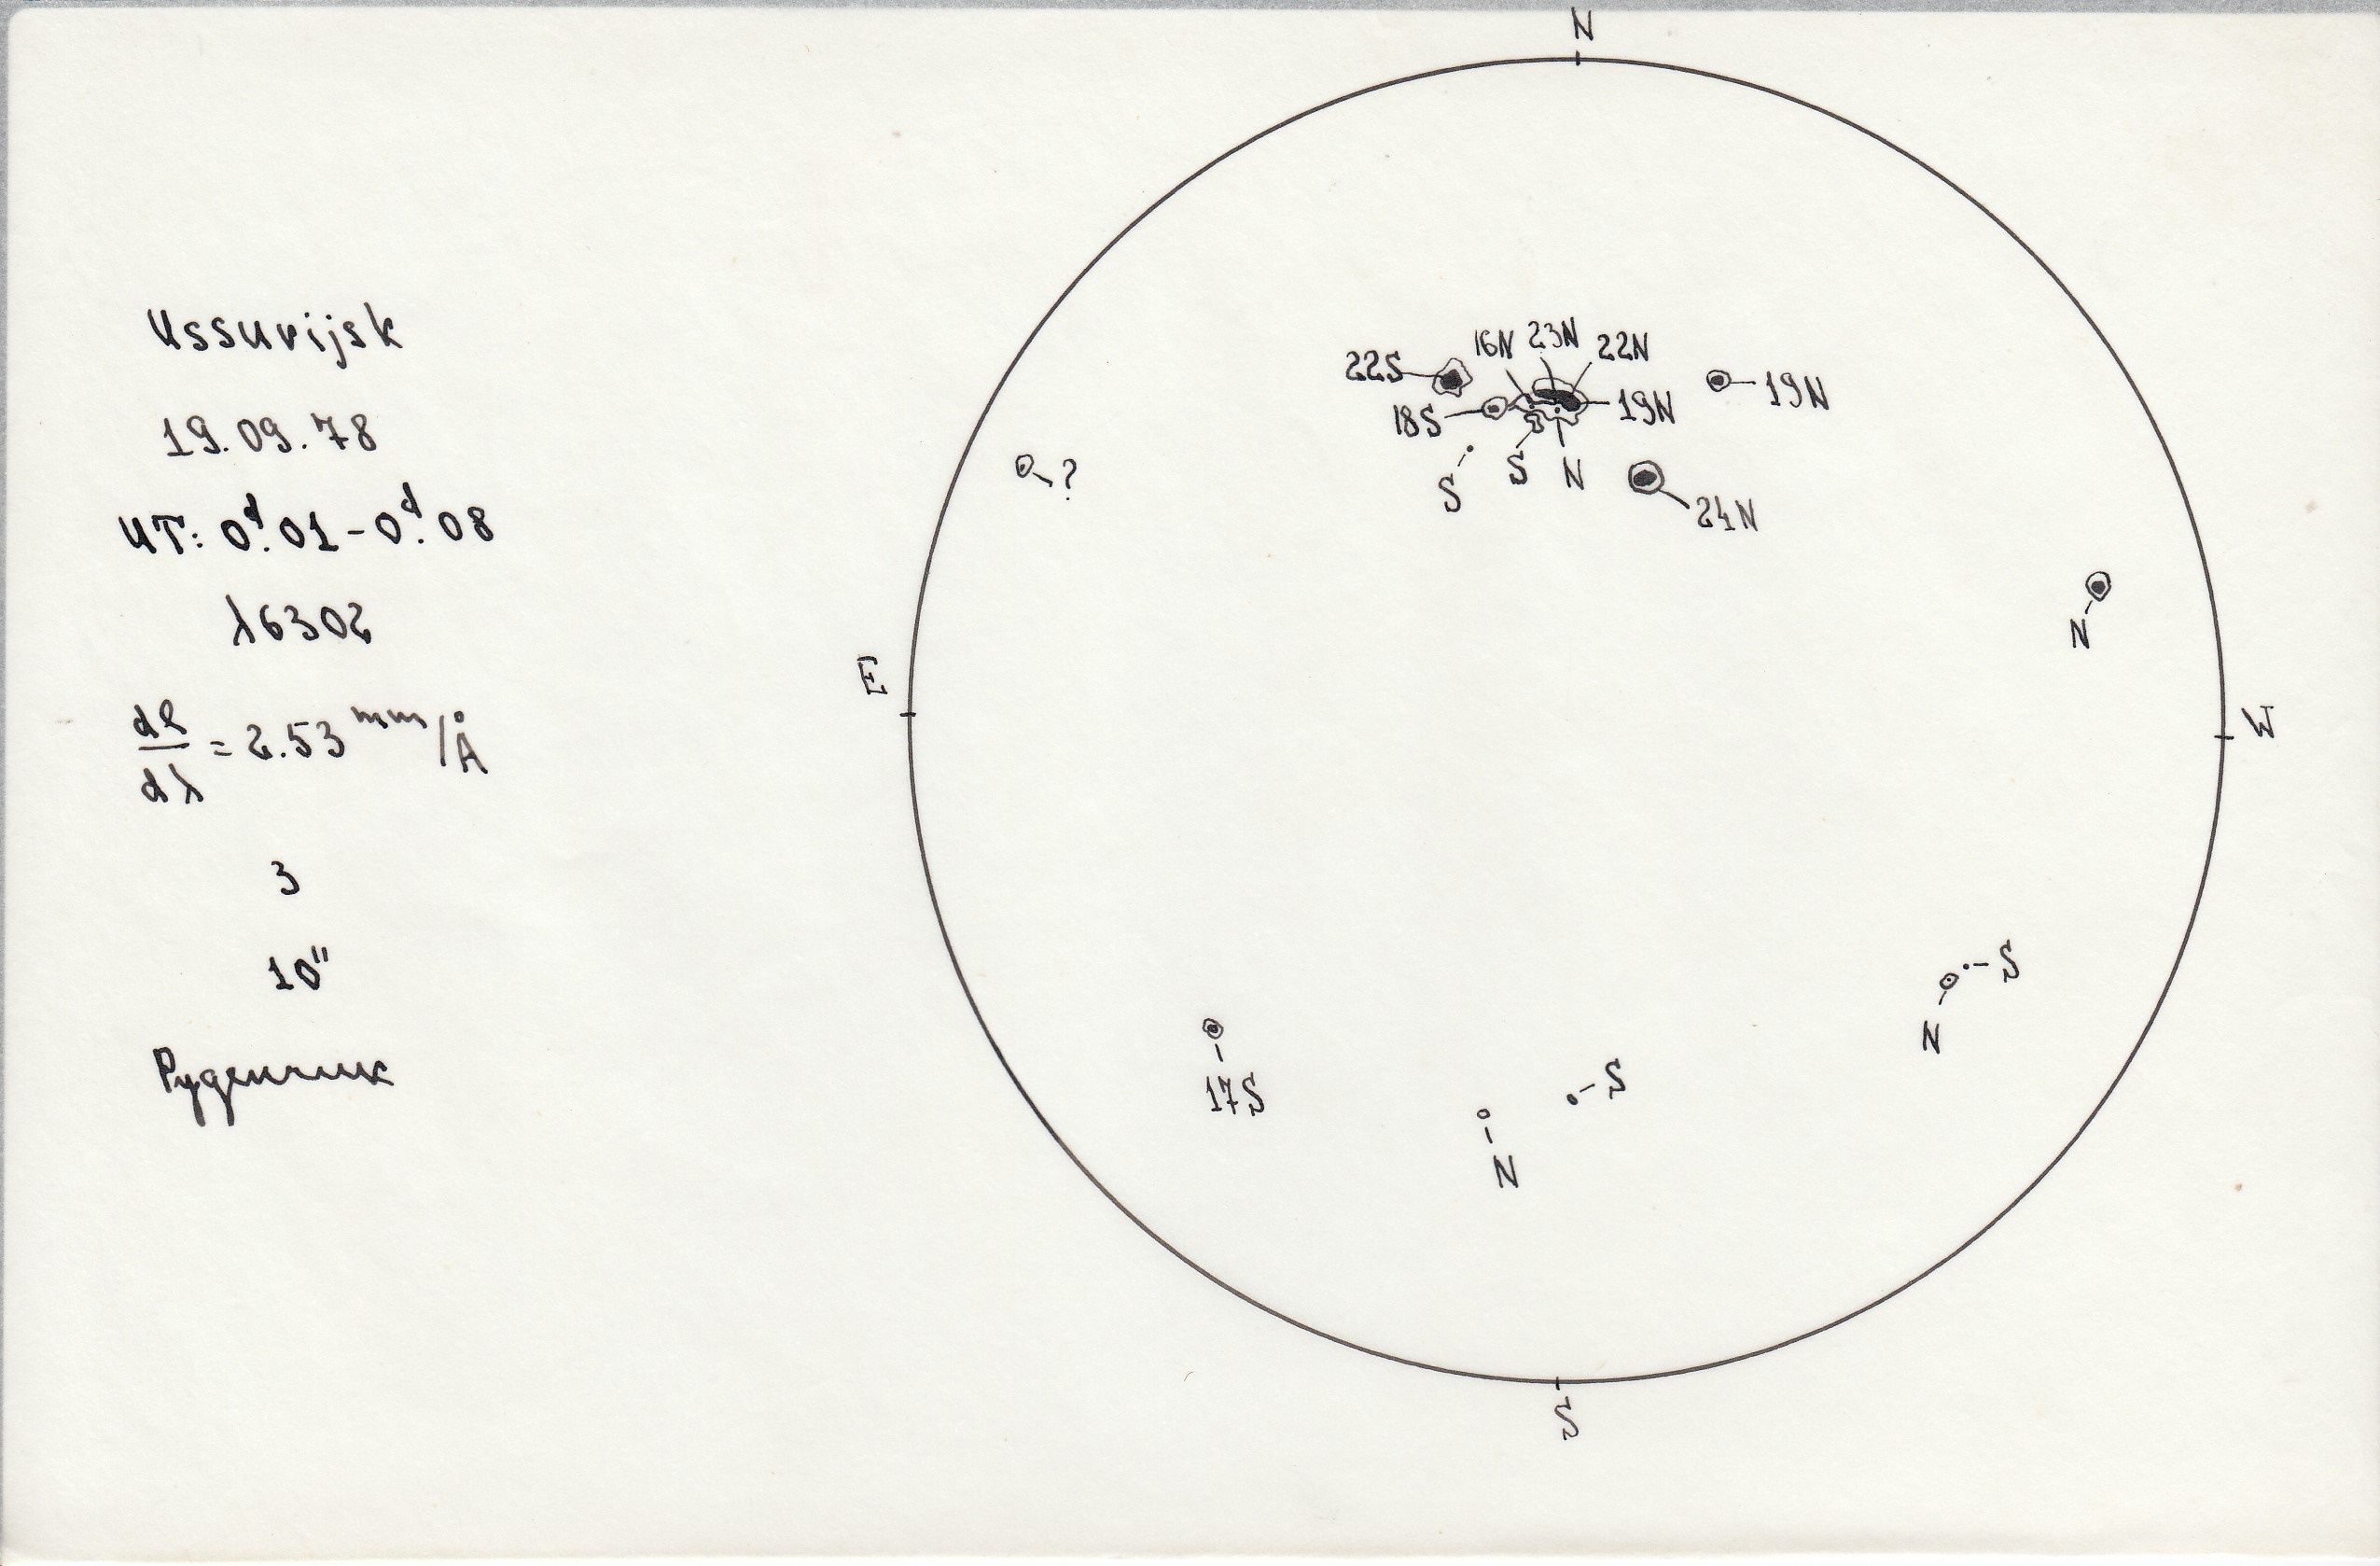 N
Ussurijsk
19.09.78
UT: 0ᵈ.01 - 0ᵈ.08
λ6302
dl/dλ = 2.53 mm/Å
3
10"
Руденчик
16N 23N 22N
22S
19N
18S
19N
S S N
?
24N
N
E
W
S
N
17S
S
N
S